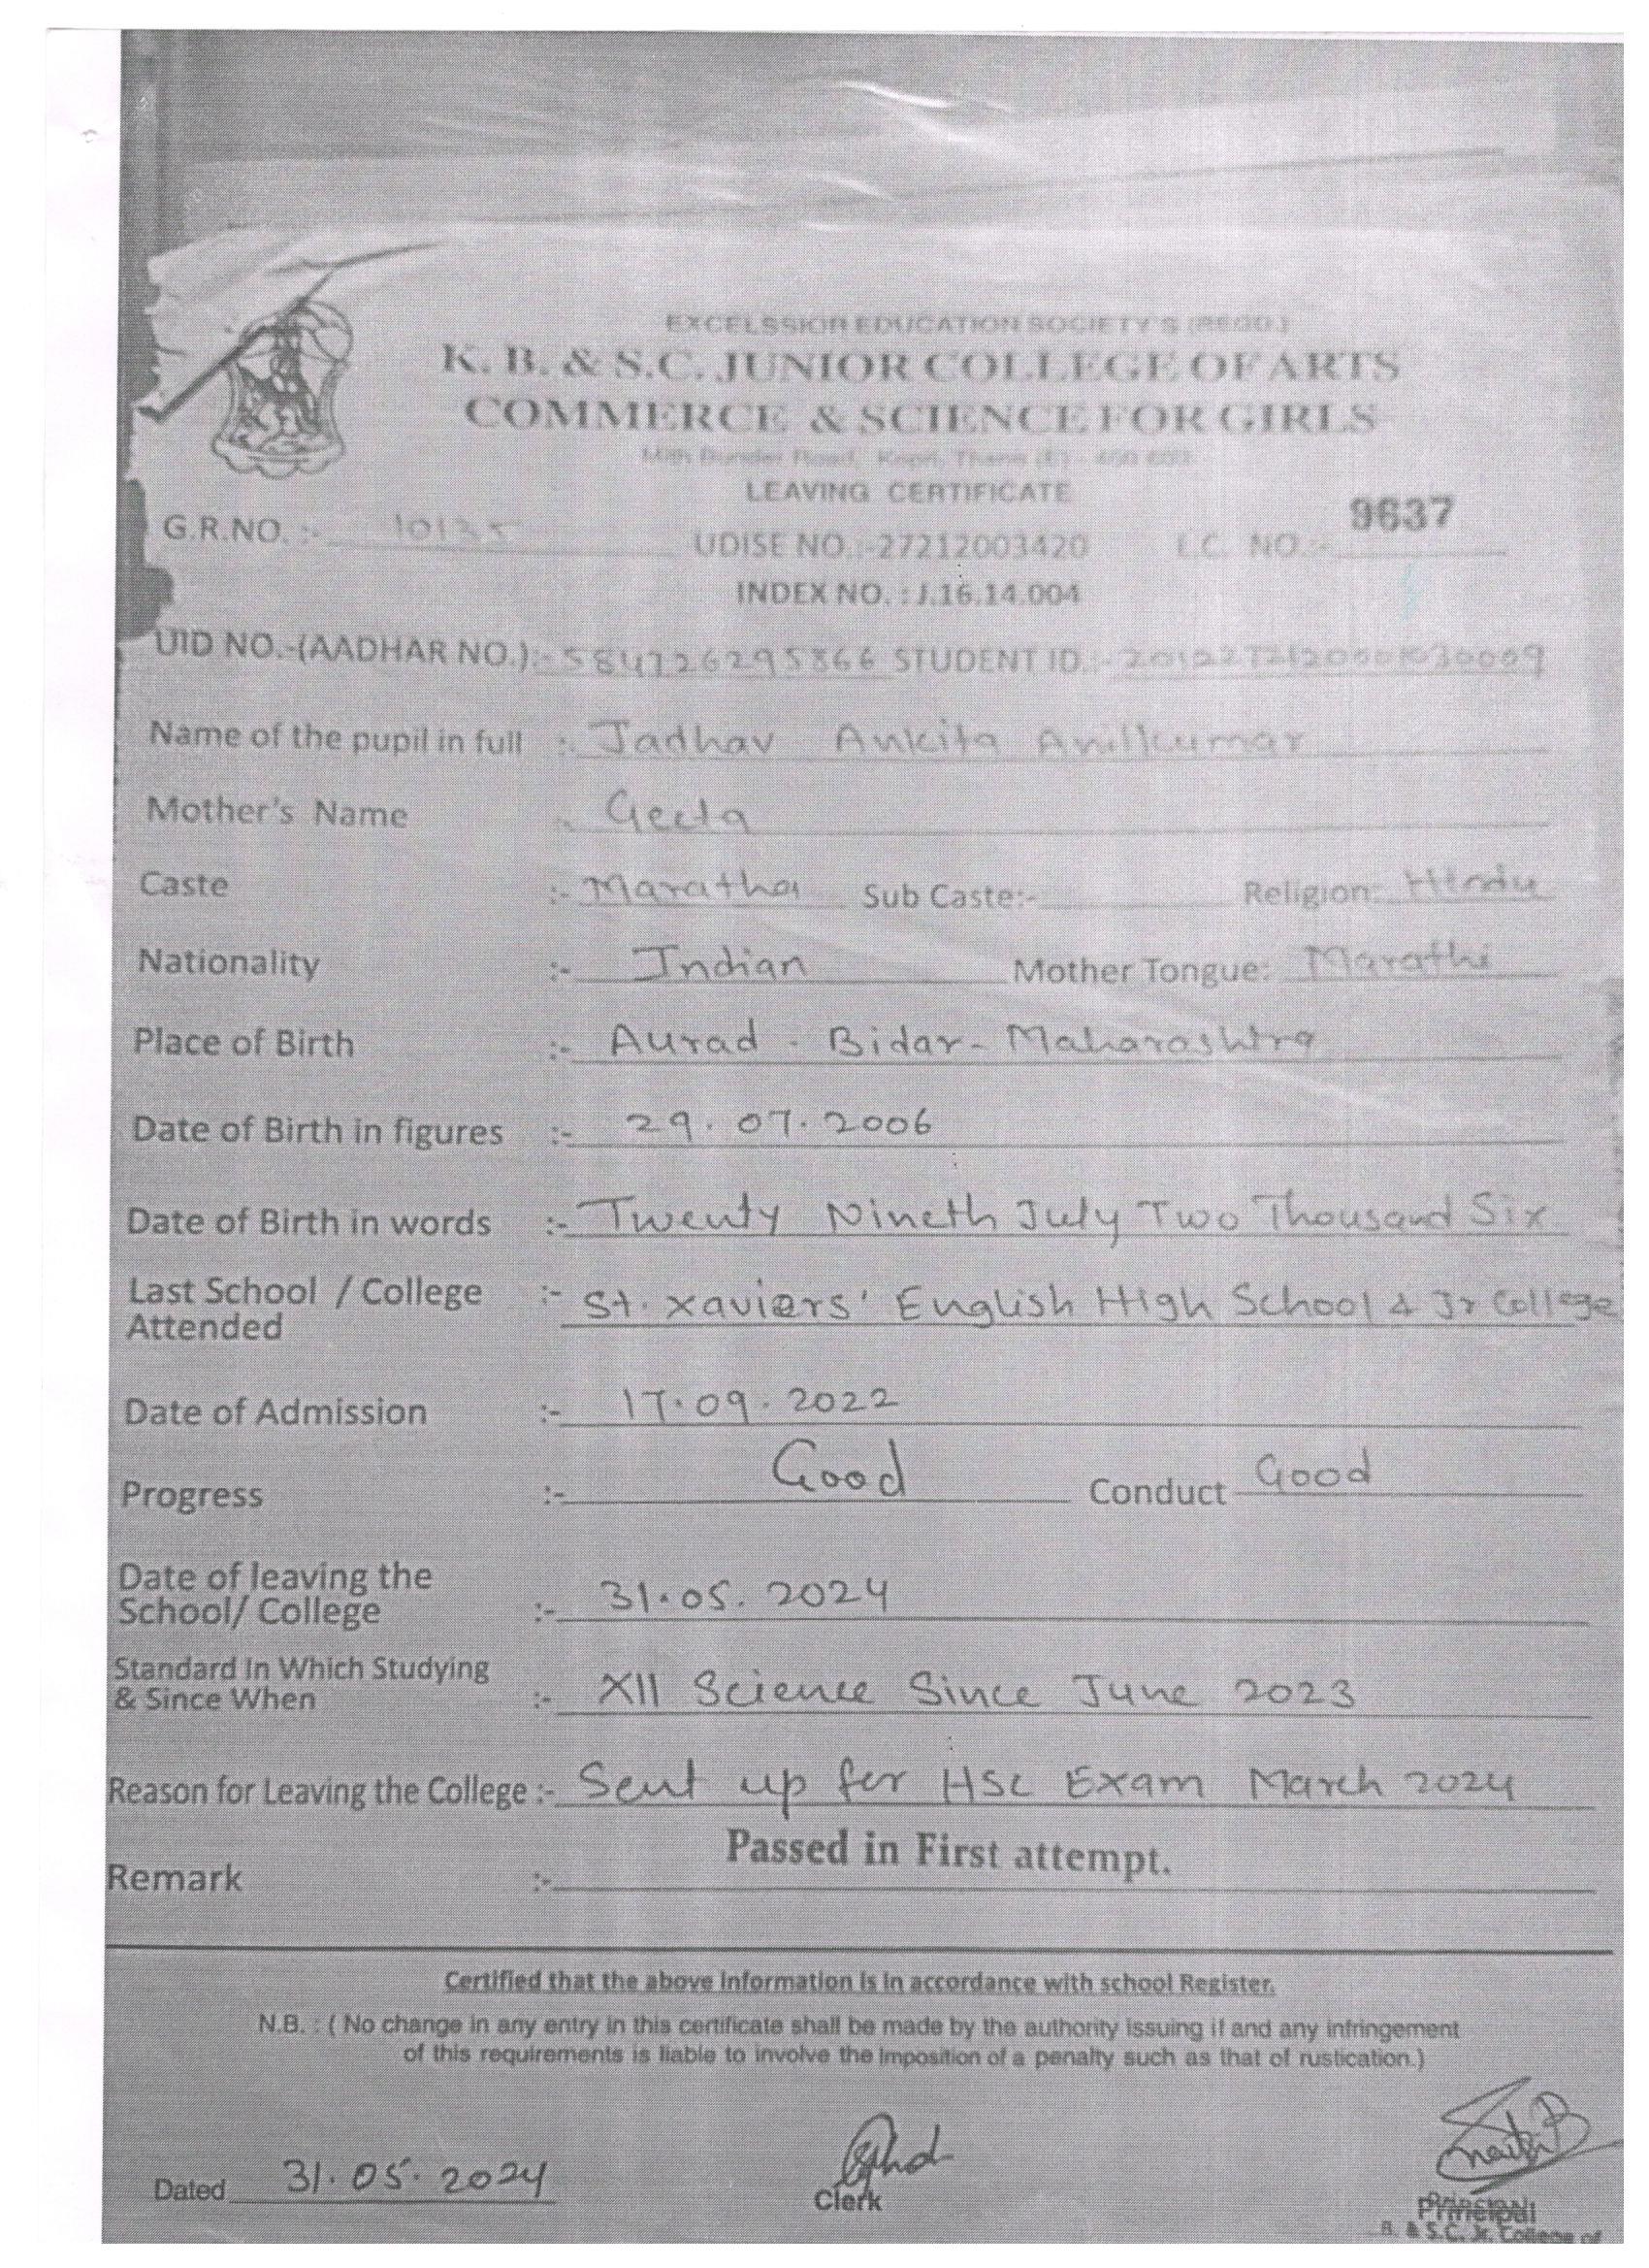 EXCELSSIOR EDUCATION SOCIETY'S (REGD.)
K. B. & S.C. JUNIOR COLLEGE OF ARTS
COMMERCE & SCIENCE FOR GIRLS
Road, Kopri, Thane (E) -
LEAVING CERTIFICATE
9637
G.R.NO. :- 10135 UDISE NO.:-27212003420 L.C. NO.:-
INDEX NO. : J.16.14.004
UID NO.-(AADHAR NO.):- 584726295866 STUDENT ID.:-
Name of the pupil in full :- Jadhav Ankita Anilkumar
Mother's Name :- Geeta
Caste :- Maratha Sub Caste:- Religion:- Hindu
Nationality :- Indian Mother Tongue: Marathi
Place of Birth :- Aurad - Bidar - Maharashtra
Date of Birth in figures :- 29.07.2006
Date of Birth in words :- Twenty Nineth July Two Thousand Six
Last School / College :- St. Xaviers' English High School & Jr College
Attended
Date of Admission :- 17.09.2022
Progress :- Good Conduct Good
Date of leaving the
School/ College :- 31.05.2024
Standard In Which Studying
& Since When :- XII Science Since June 2023
Reason for Leaving the College :- Sent up for HSC Exam March 2024
Passed in First attempt.
Remark :-
Certified that the above information is in accordance with school Register.
N.B. : ( No change in any entry in this certificate shall be made by the authority issuing if and any infringement
of this requirements is liable to involve the imposition of a penalty such as that of rustication.)
Dated 31.05.2024
Clerk
Principal
B. & S.C. Jr. College of